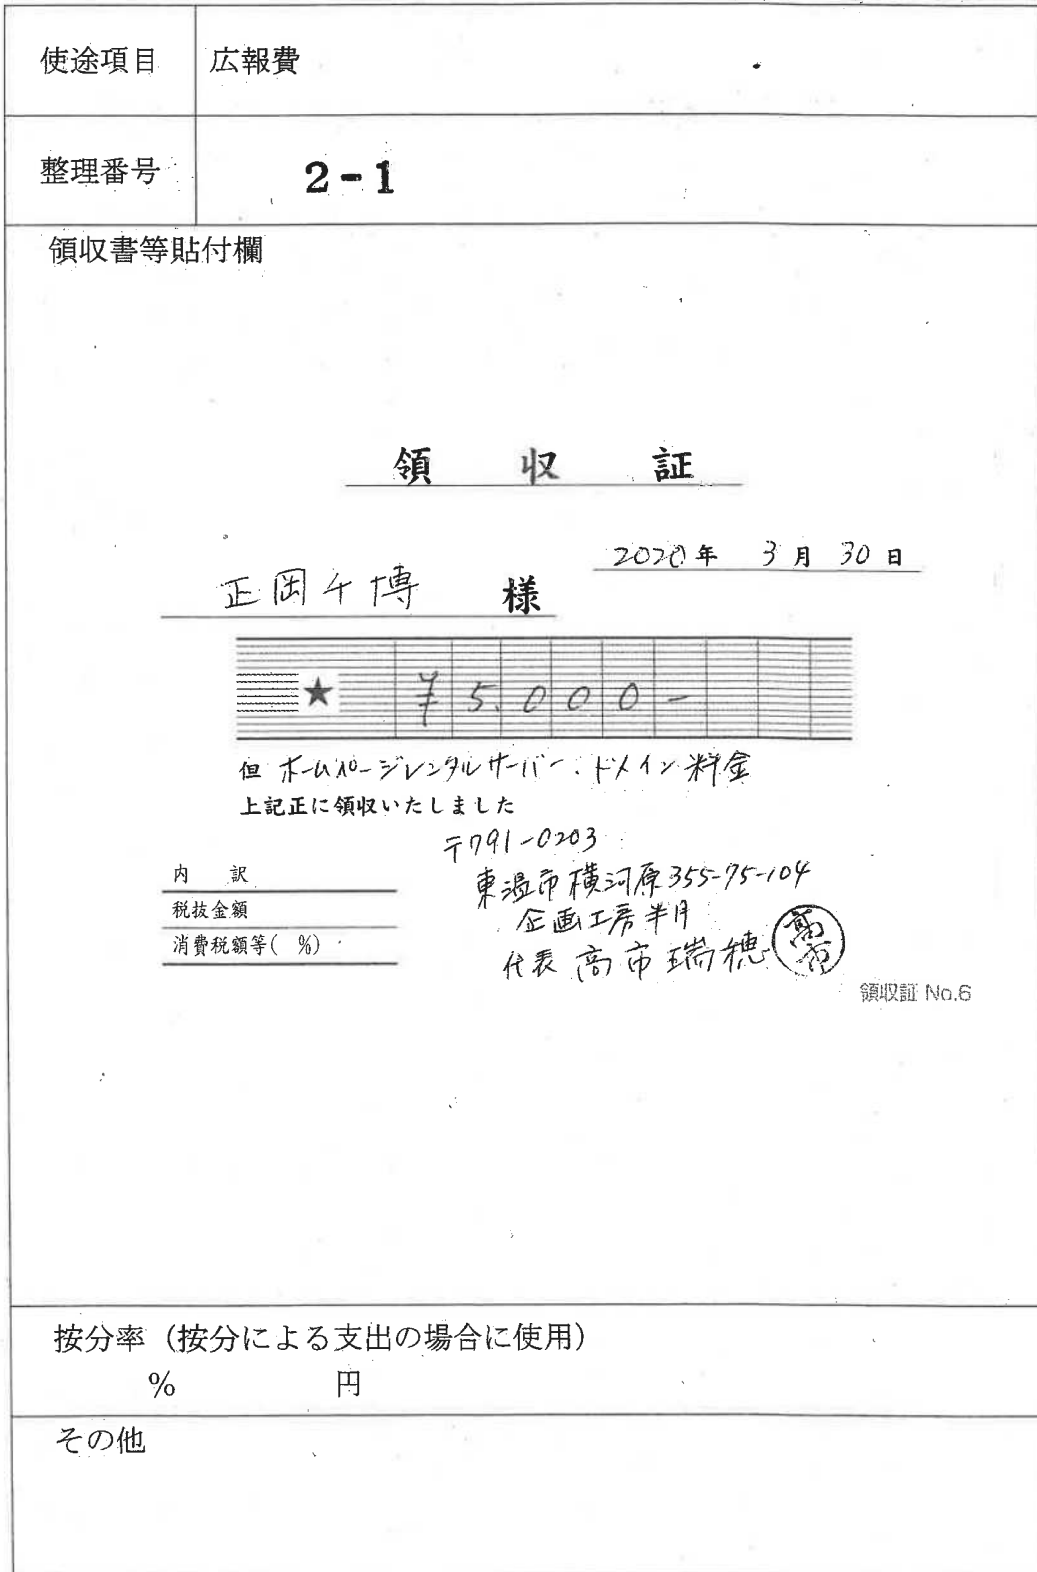 使途項目 広報費
整理番号 2-1
領収書等貼付欄
領 収 証
2020年 3月 30日
正岡千博 様
★ ¥5,000-
但 ホームページレンタルサーバー・ドメイン料金
上記正に領収いたしました
〒791-0203
東温市横河原355-75-104
企画工房半月
代表 高市瑞穂 高市
内 訳
税抜金額
消費税額等( %)
領収証 No.6
按分率（按分による支出の場合に使用）
% 円
その他